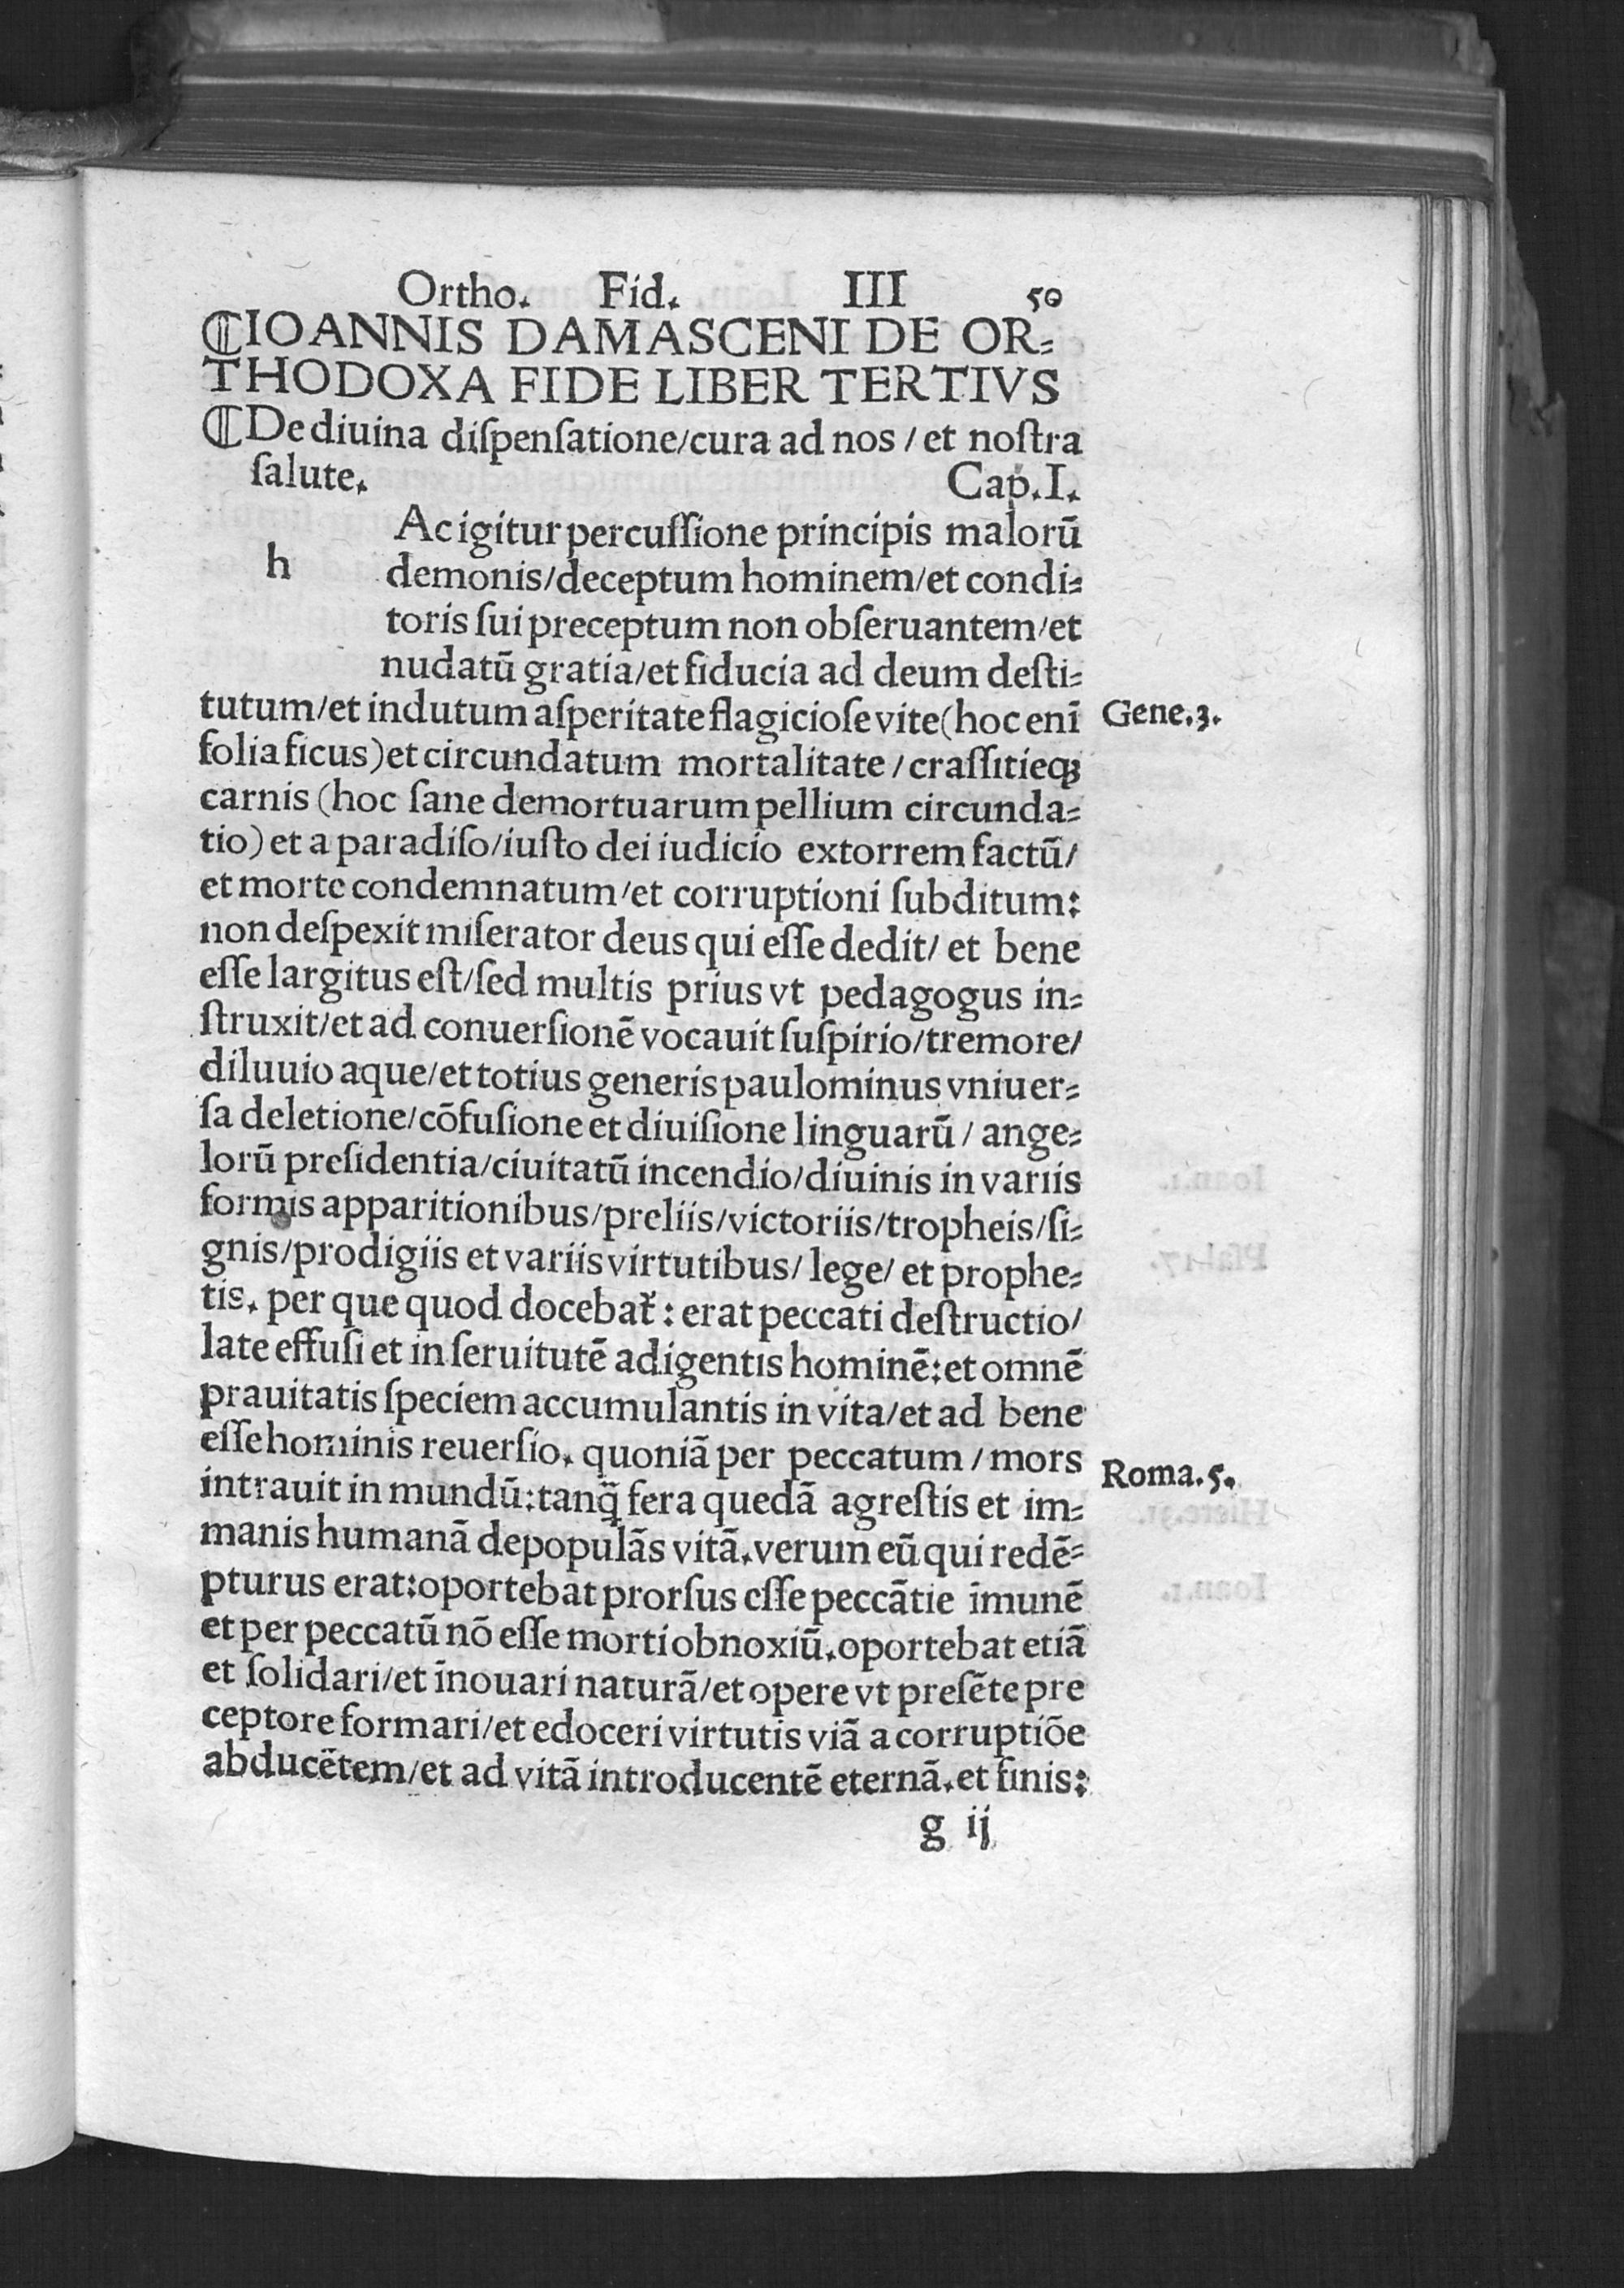 Ortho. Fid. III 50
⸿IOANNIS DAMASCENI DE OR⸗
THODOXA FIDE LIBER TERTIVS
⸿De diuina diſpenſatione/cura ad nos / et noſtra
ſalute. Cap.I.
h Ac igitur percuſſione principis malorū
demonis/deceptum hominem/et condi⸗
toris ſui preceptum non obſeruantem/et
nudatū gratia/et fiducia ad deum deſti⸗
tutum/et indutum aſperitate flagicioſe vite(hoc enī Gene.3.
folia ficus)et circundatum mortalitate / craſſitieqꝫ
carnis (hoc ſane demortuarum pellium circunda⸗
tio) et a paradiſo/iuſto dei iudicio extorrem factū/
et morte condemnatum/et corruptioni ſubditum:
non deſpexit miſerator deus qui eſſe dedit/ et bene
eſſe largitus eſt/ſed multis prius vt pedagogus in⸗
ſtruxit/et ad conuerſionē vocauit ſuſpirio/tremore/
diluuio aque/et totius generis paulominus vniuer⸗
ſa deletione/cōfuſione et diuiſione linguarū / ange⸗
lorū preſidentia/ciuitatū incendio/diuinis in variis
formis apparitionibus/preliis/victoriis/tropheis/ſi⸗
gnis/prodigiis et variis virtutibus/ lege/ et prophe⸗
tis. per que quod docebat᷑ : erat peccati deſtructio/
late effuſi et in ſeruitutē adigentis hominē:et omnē
prauitatis ſpeciem accumulantis in vita/et ad bene
eſſe hominis reuerſio. quoniā per peccatum / mors
intrauit in mundū:tanq̄ fera quedā agreſtis et im⸗ Roma.5.
manis humanā depopulās vitā.verum eū qui redē⸗
pturus erat:oportebat prorſus eſſe peccātie īmunē
et per peccatū nō eſſe morti obnoxiū.oportebat etiā
et ſolidari/et īnouari naturā/et opere vt preſēte pre
ceptore formari/et edoceri virtutis viā a corruptiōe
abducētem/et ad vitā introducentē eternā.et finis:
g ij